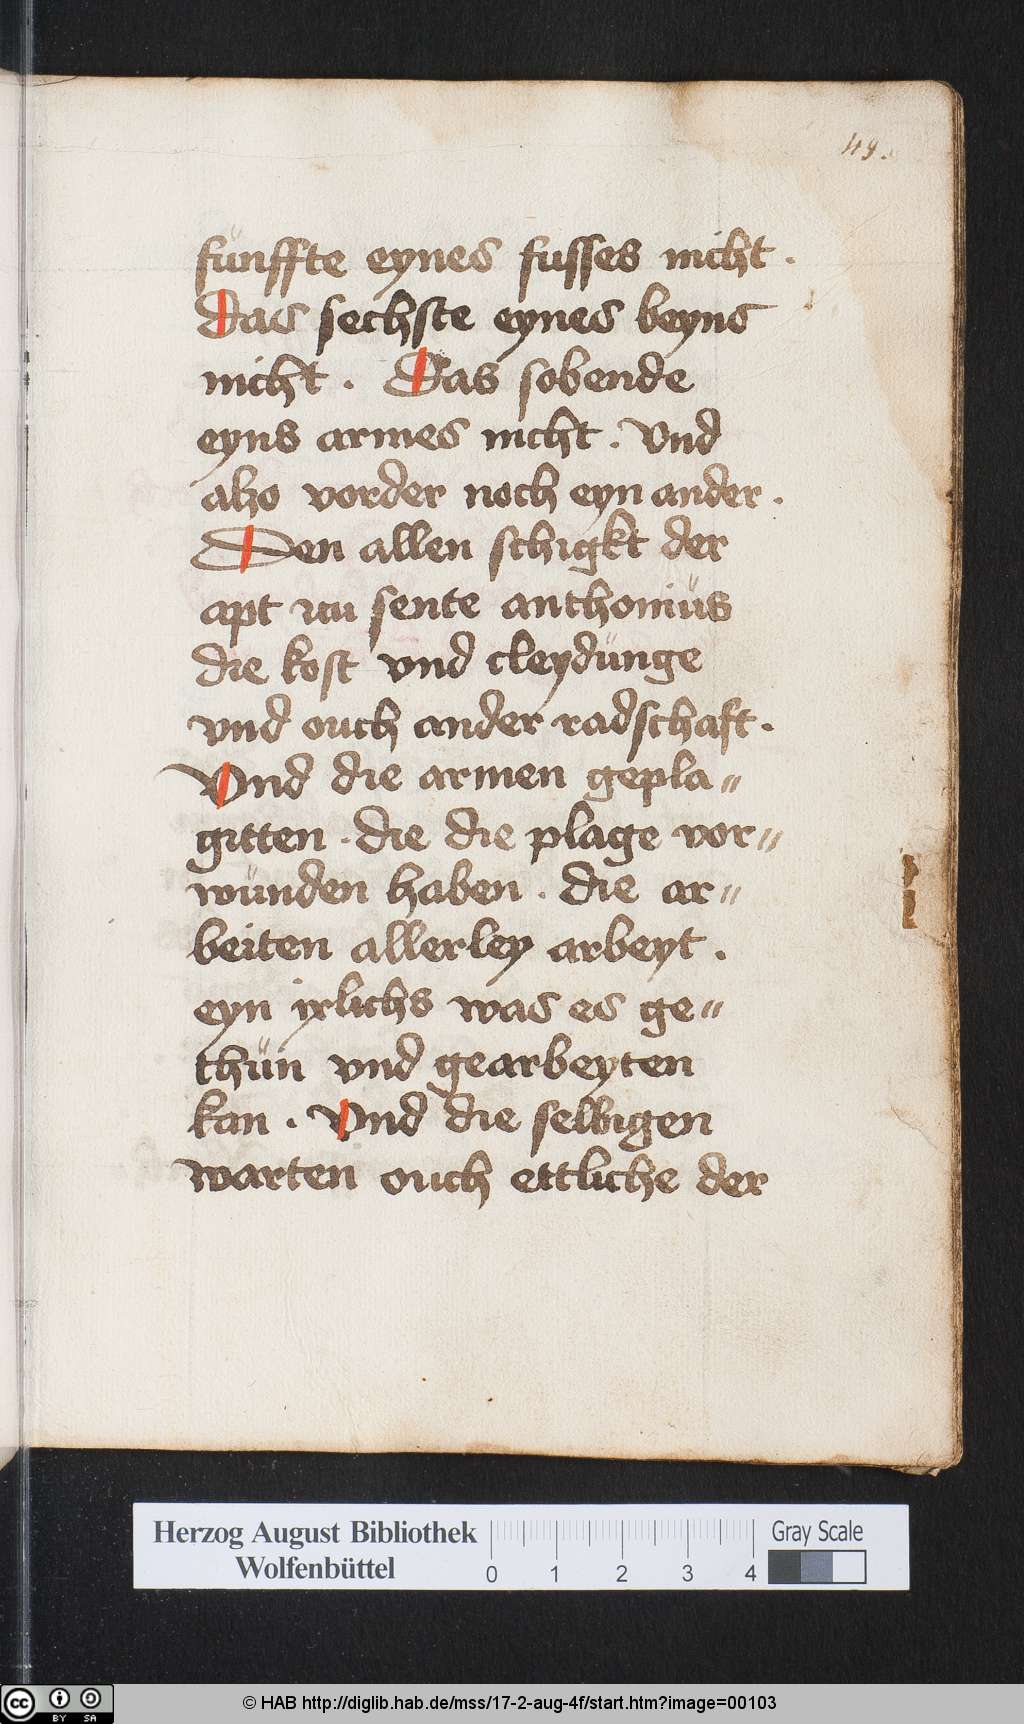 49.
fünffte eynes fusses nicht .
Das sechste eynes beyns
nicht . Das sobende
eyns armes nicht . Vnd
alzo vorder noch eyn ander .
Den allen schigkt der
apt zu sente anthoniüs
die kost vnd cleydünge
vnd ouch ander radschaft .
Vnd die armen gepla〃
gitten . die die plage vor〃
wünden haben . die ar〃
beiten allerley arbeyt .
eyn itzlichs was es ge〃
thün vnd gearbeyten
kan . Vnd die selbigen
warten ouch ettliche der
Herzog August Bibliothek
Wolfenbüttel
0 1 2 3 4
Gray Scale
cc BY SA
© HAB http://diglib.hab.de/mss/17-2-aug-4f/start.htm?image=00103